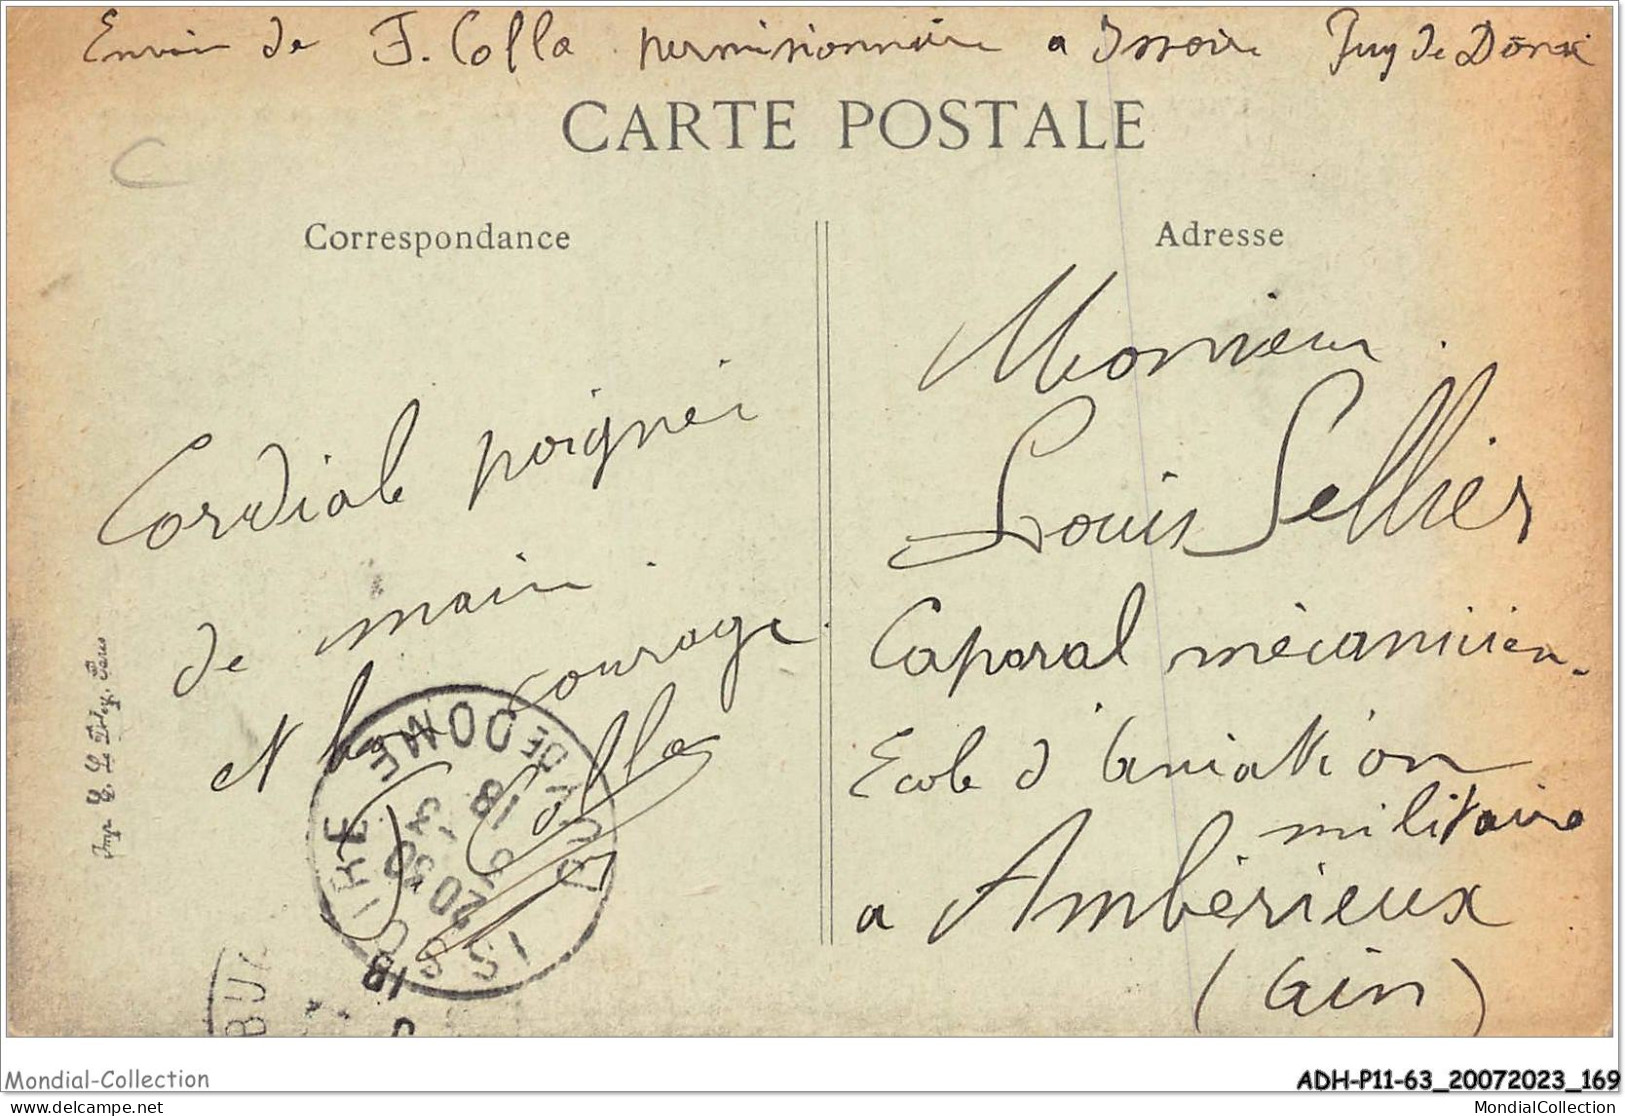 Envoi de F. Colla permissionnaire a Issoire Puy de Dôme
CARTE POSTALE
Correspondance
Adresse
Cordiale poignée
de main
et bon courage
Colla
Imp.
Monsieur
Louis Sellier
Caporal mécanicien
Ecole d'aviation
militaire
a Ambérieux
(Ain)
ISSOIRE
PUY DE DOME
20 30
18 - 3
18
Mondial-Collection
ADH-P11-63_20072023_169
delcampe.net
MondialCollection